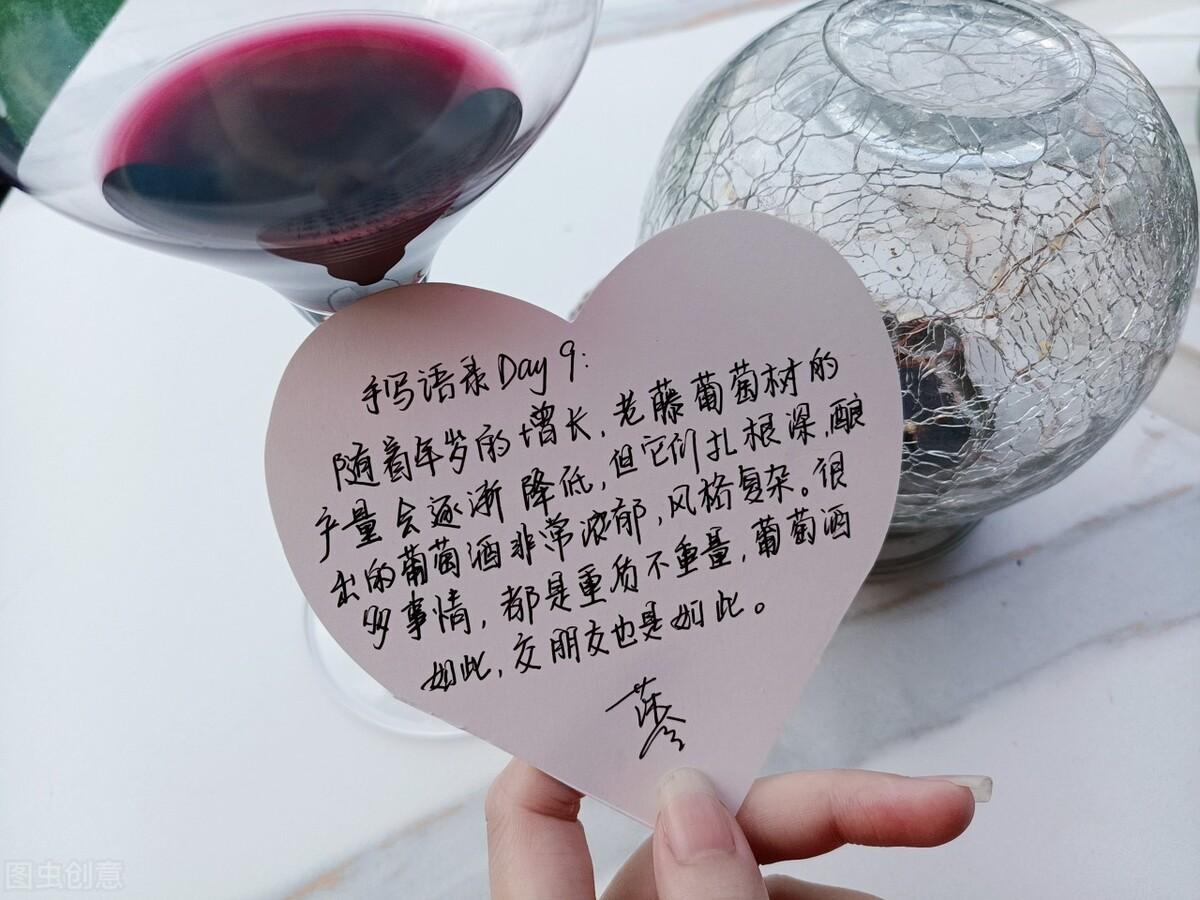 手写语录Day 9:
随着年岁的增长,老藤葡萄树的
产量会逐渐降低,但它们扎根深,酿
出的葡萄酒非常浓郁,风格复杂。很
多事情,都是重质不重量,葡萄酒
如此,交朋友也是如此。
图虫创意